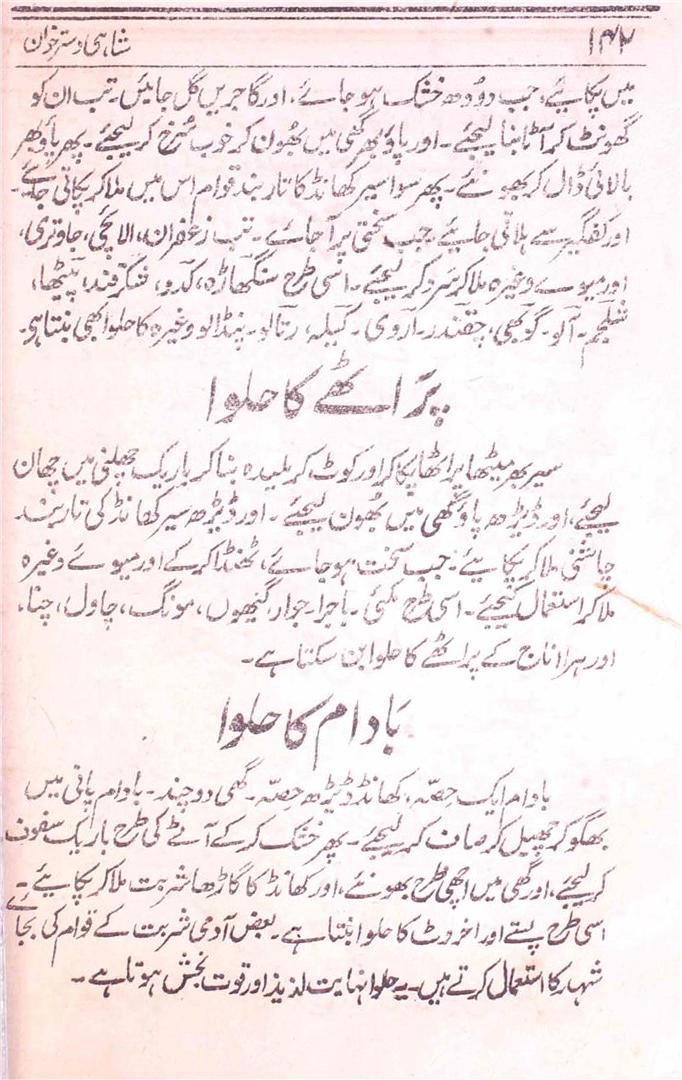 ۱۴۲ شاہی دسترخوان
میں پکائیے، جب دوُدھ خشک ہو جائے، اور گاجریں گل جائیں۔ تب ان کو
گھونٹ کر آٹا بنا لیجئے۔ اور پاؤ بھر گھی میں بھُون کر خوب سُرخ کر لیجئے۔ پھر پاؤ بھر
بالائی ڈال کر بھونئے۔ پھر سوا سیر کھانڈ کا تار بند قوام اس میں ملا کر پکاتی جائے۔
اور کفگیر سے ہلاتی جائیے جب سختی پر آ جائے۔ تب زعفران، الائچی، جاوتری،
اور میوے وغیرہ ملا کر سَرد کر لیجئے۔ اسی طرح سنگھاڑہ، کدّو، شکرقند، پیٹھا،
شلجم۔ آلو۔ گوبھی، چقندر۔ اَروی۔ کیلہ، رتالو۔ پنڈالو وغیرہ کا حلوا بھی بنتا ہی۔
پَراٹھے کا حلوا
سیر بھر میٹھا پراٹھا پکا کر اور کوٹ کر ملیدہ بنا کر باریک چھلنی میں چھان
لیجئے، اور ڈیڑھ پاؤ گھی میں بھُون لیجئے۔ اور ڈیڑھ سیر کھانڈ کی تار بند
چاشنی ملا کر پکائیے۔ جب سخت ہو جائے، ٹھنڈا کر کے اور میوے وغیرہ
ملا کر استعمال کیجئے۔ اسی طرح مکئی۔ باجرا۔ جوار، گیہوں، مونگ، چاول، چنا،
اور ہرا اناج کے پراٹھے کا حلوا بن سکتا ہے۔
بَادام کا حلوا
بادام ایک حِصّہ، کھانڈ ڈیڑھ حِصّہ۔ گھی دو چند۔ بادام پانی میں
بھگو کر چھیل کر صاف کر لیجئے۔ پھر خشک کر کے آٹے کی طرح باریک سفوف
کر لیجئے، اور گھی میں اچھی طرح بھونئے، اور کھانڈ کا گاڑھا شربت ملا کر پکائیے۔
اسی طرح پستے اور اخروٹ کا حلوا بنتا ہے۔ بعض آدمی شربت کے قوام کی بجائے
شہد کا استعمال کرتے ہیں۔ یہ حلوا نہایت لذیذ اور قوت بخش ہوتا ہے۔